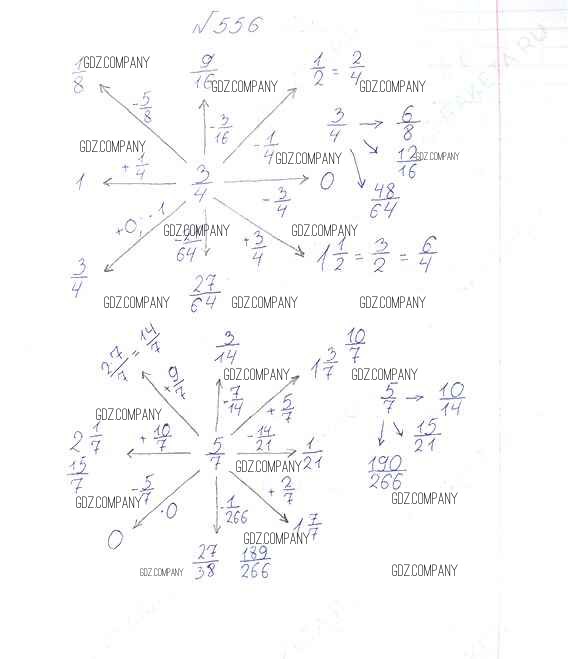 №556
1/8 GDZ.COMPANY 9/16 GDZ.COMPANY 1/2 = 2/4 GDZ.COMPANY
-5/8 -3/16 -1/4 3/4 → 6/8
GDZ.COMPANY GDZ.COMPANY 12/16 GDZ.COMPANY
+1/4
1 3/4 -3/4 0 48/64
+0; ·1 GDZ.COMPANY /64 +3/4 GDZ.COMPANY
3/4 27/64 1 1/2 = 3/2 = 6/4
GDZ.COMPANY GDZ.COMPANY GDZ.COMPANY
2 7/7 = 14/7 3/14 1 3/7 10/7
+9/7 GDZ.COMPANY GDZ.COMPANY
-7/14 +5/7 5/7 → 10/14
GDZ.COMPANY
2 1/7 +10/7 -14/21 15/21
15/7 5/7 GDZ.COMPANY 1/21 190/266
GDZ.COMPANY -5/7 ·0 -1/266 +2/7 GDZ.COMPANY
0 1 7/7
GDZ.COMPANY
GDZ.COMPANY 27/38 189/266 GDZ.COMPANY